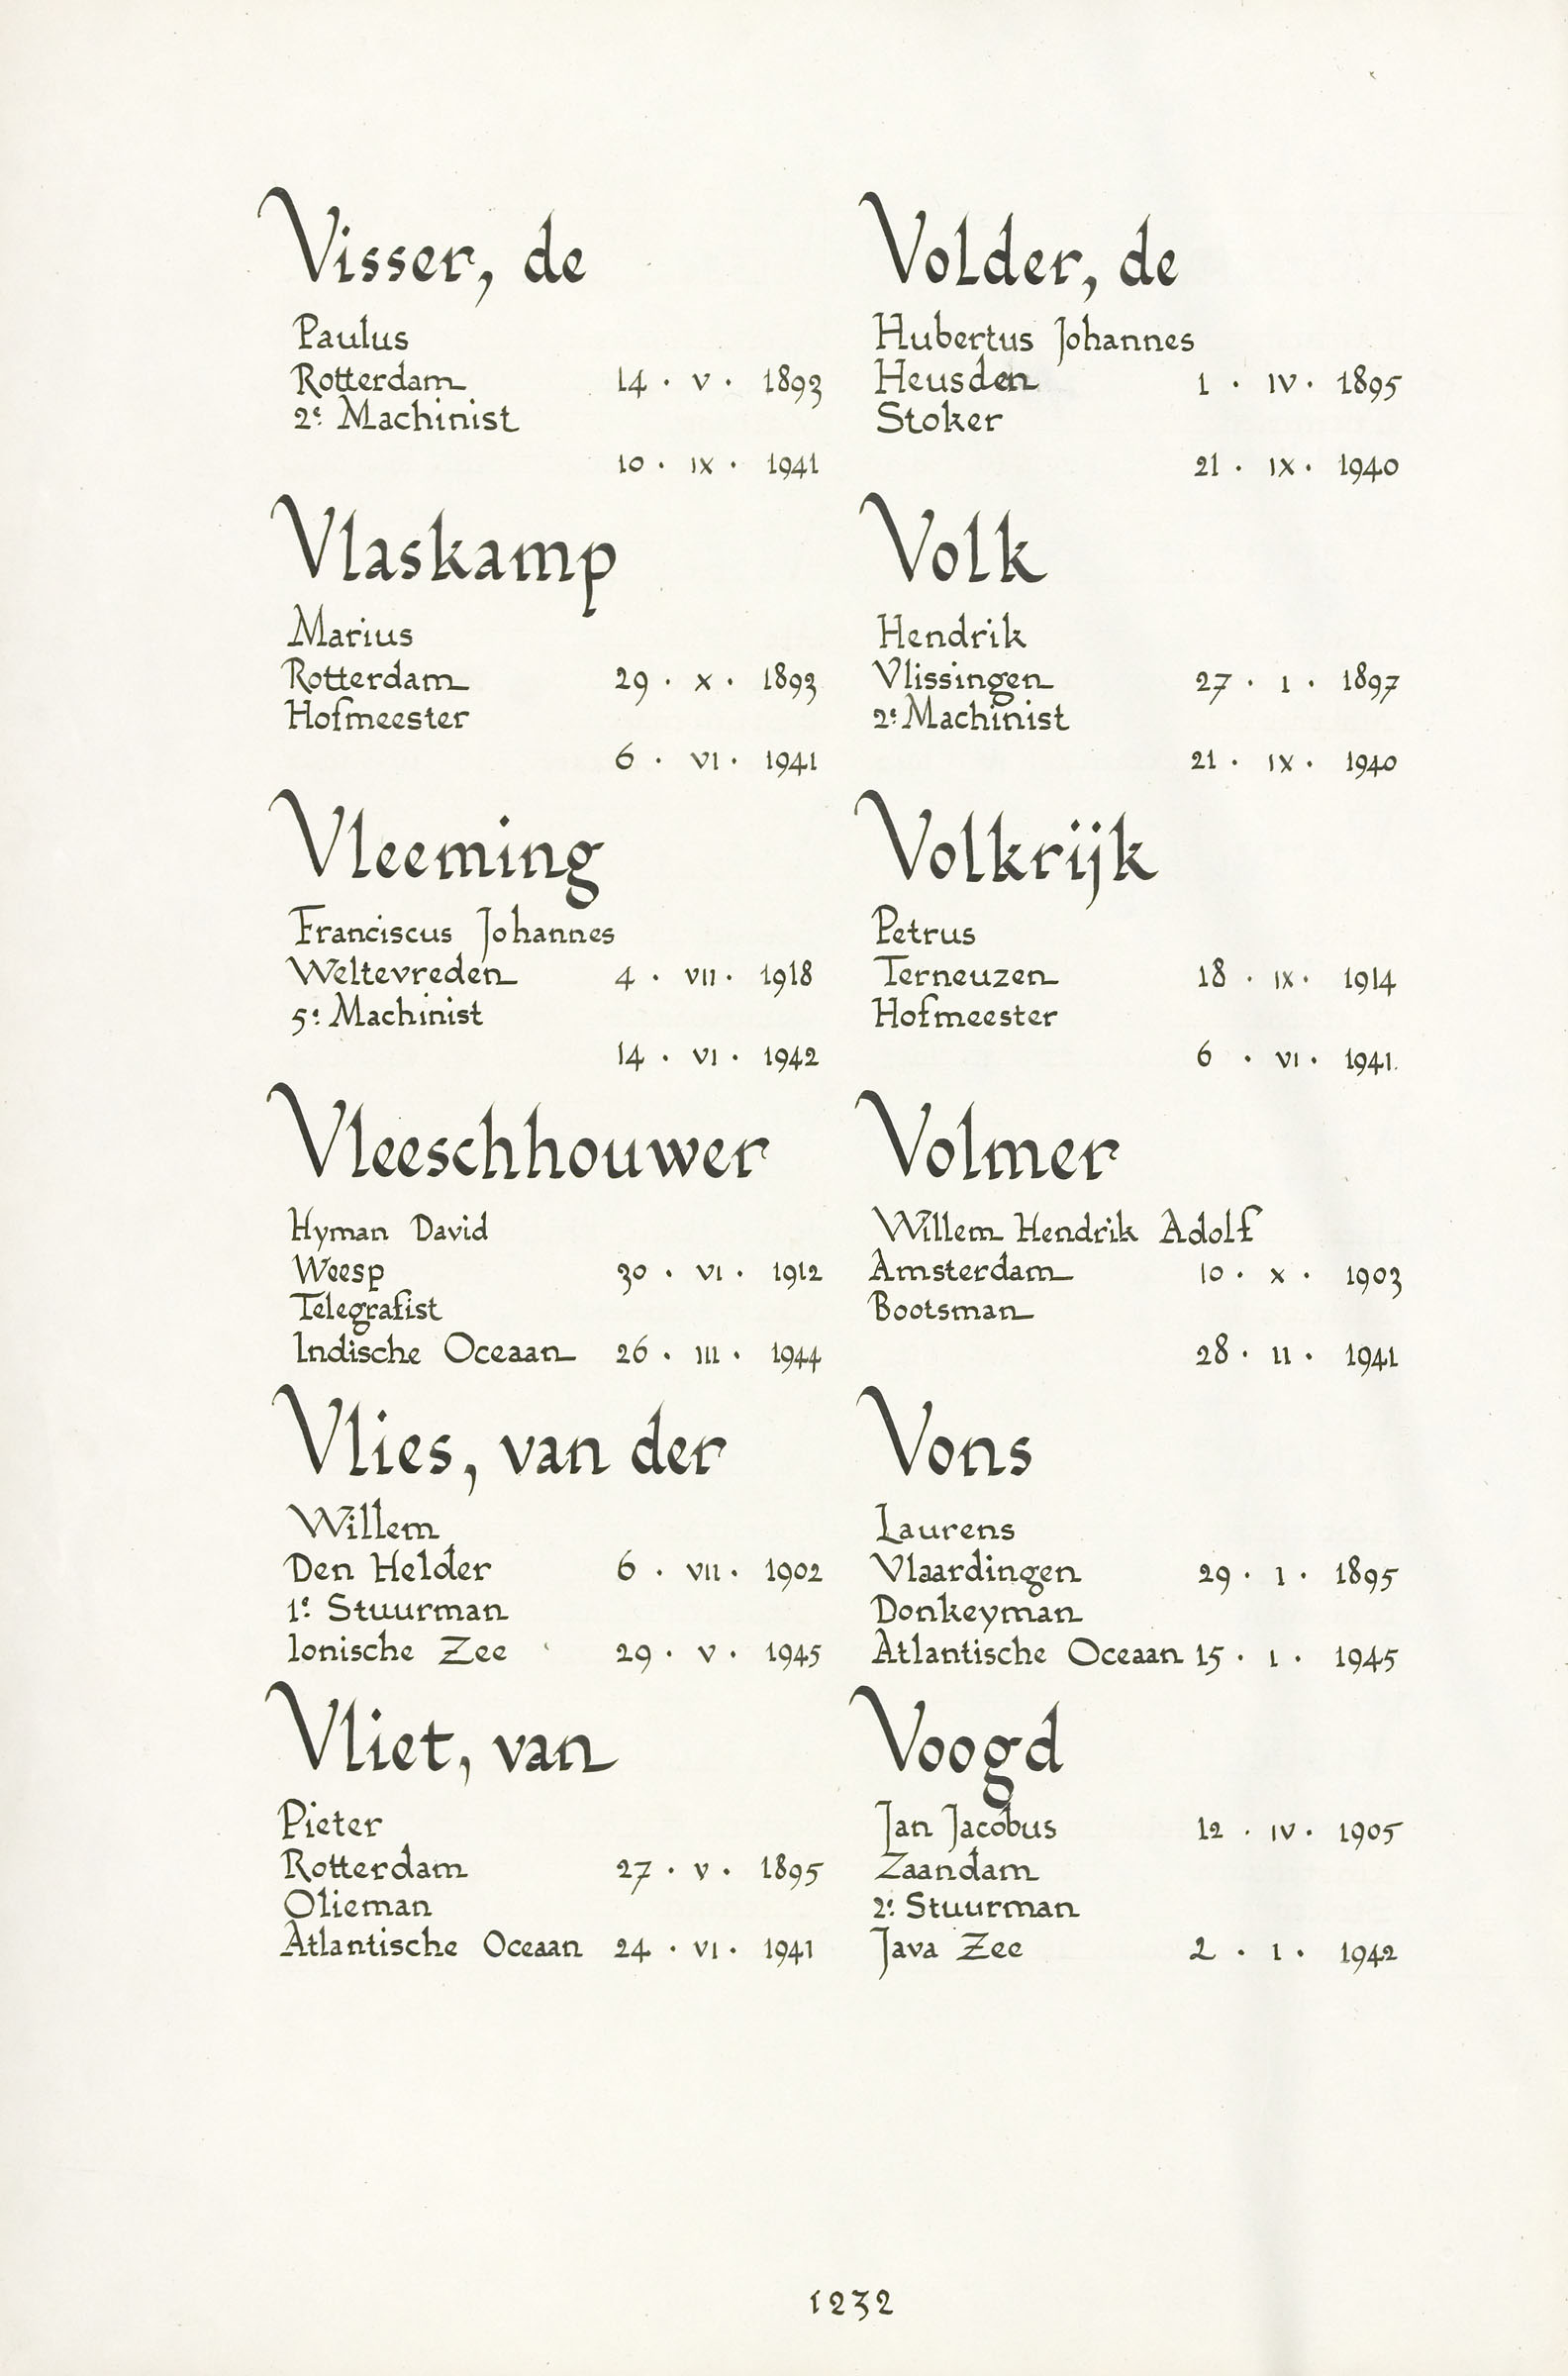 Visser, de
Paulus
Rotterdam 14 · V · 1893
2e Machinist
10 · IX · 1941
Vlaskamp
Marius
Rotterdam 29 · X · 1893
Hofmeester
6 · VI · 1941
Vleeming
Franciscus Johannes
Weltevreden 4 · VII · 1918
5e Machinist
14 · VI · 1942
Vleeschhouwer
Hyman David
Weesp 30 · VI · 1912
Telegrafist
Indische Oceaan 26 · III · 1944
Vlies, van der
Willem
Den Helder 6 · VII · 1902
1e Stuurman
Ionische Zee 29 · V · 1945
Vliet, van
Pieter
Rotterdam 27 · V · 1895
Olieman
Atlantische Oceaan 24 · VI · 1941
Volder, de
Hubertus Johannes
Heusden 1 · IV · 1895
Stoker
21 · IX · 1940
Volk
Hendrik
Vlissingen 27 · I · 1897
2e Machinist
21 · IX · 1940
Volkrijk
Petrus
Terneuzen 18 · IX · 1914
Hofmeester
6 · VI · 1941.
Volmer
Willem Hendrik Adolf
Amsterdam 10 · X · 1903
Bootsman
28 · II · 1941
Vons
Laurens
Vlaardingen 29 · I · 1895
Donkeyman
Atlantische Oceaan 15 · I · 1945
Voogd
Jan Jacobus 12 · IV · 1905
Zaandam
2e Stuurman
Java Zee 2 · I · 1942
1232